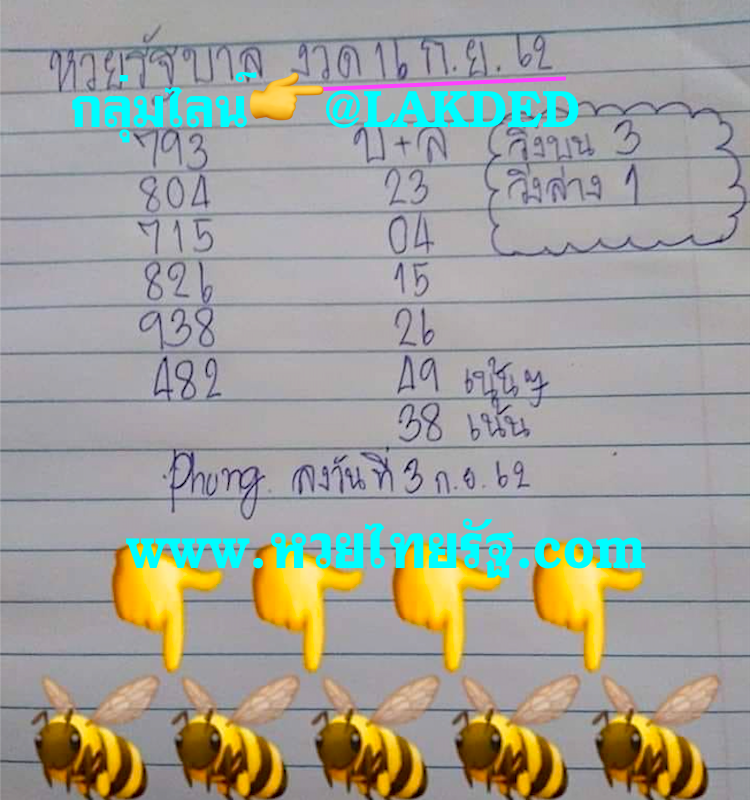 หวยรัฐบาล งวด 16 ก.ย. 62
กลุ่มไลน์ @LAKDED
793 บ+ล วิ่งบน 3
804 23 วิ่งล่าง 1
715 04
826 15
938 26
482 49 เน้นๆ
38 เน้น
Phung. ลงวันที่ 3 ก.ย. 62
www.หวยไทยรัฐ.com